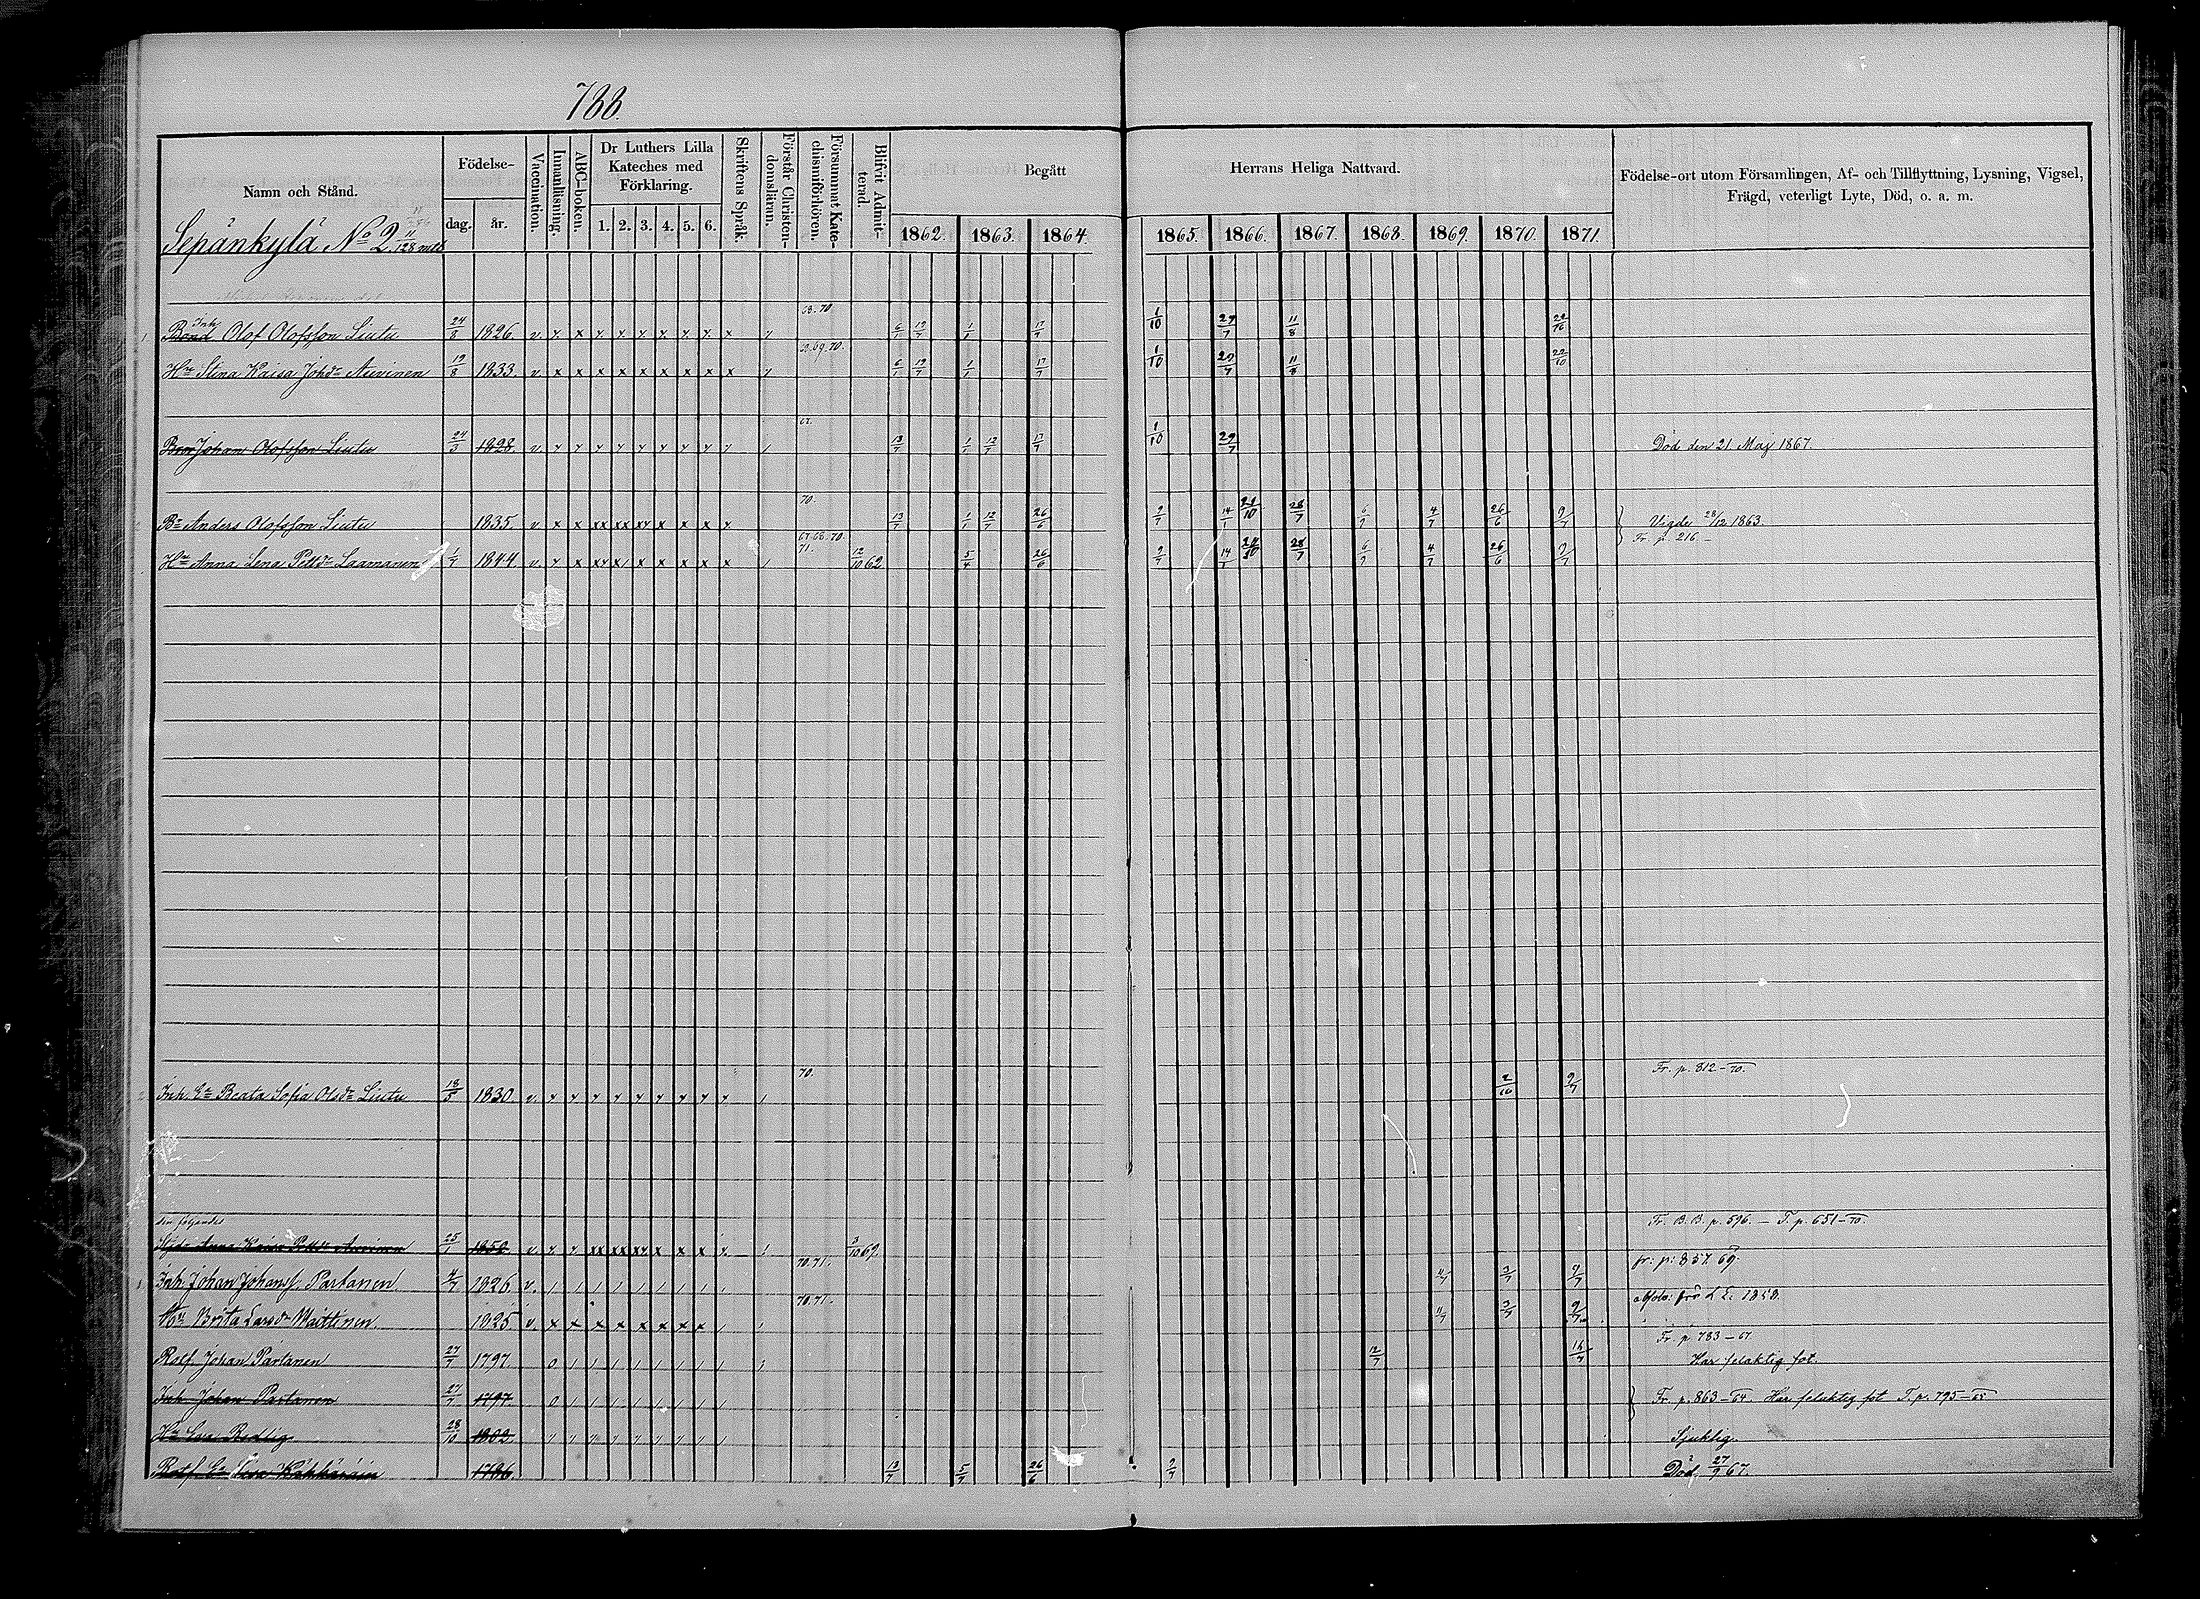 788.
Namn och Stånd. Födelse- dag. år. Vaccination. Innanläsning. ABC-boken. Dr Luthers Lilla Kateches med Förklaring. 1. 2. 3. 4. 5. 6. Skriftens Språk. Förstår Christendomsläran. Försummat Katechismiförhören. Blifvit Admitterad. Begått Herrans Heliga Nattvard. Födelse-ort utom Församlingen, Af- och Tillflyttning, Lysning, Vigsel, Frägd, veterligt Lyte, Död, o. a. m.
1862. 1863. 1864. 1865. 1866. 1867. 1868. 1869. 1870. 1871.
Sepänkylä No 2. 11/128 mtl
68. 70
Bond Inh Olof Olofsson Liutu 24/8 1826. v. x x x x x x x x x 6/1 12/7 1/1 17/7 1/10 29/7 11/8 22/10
69. 70.
Hu Stina Kaisa Johdr Auvinen 19/8 1833. v. x x x x x x x x x 6/1 12/7 1/1 17/7 1/10 29/7 11/8 22/10
67.
Bror Johan Olofsson Liutu 24/3 1828. v. 13/7 1/1 12/7 17/7 1/10 29/7 Död den 21. Maj 1867.
70.
Br Anders Olofsson Liutu 1835. v x x xx xx xx x x x x 13/7 1/1 12/7 26/6 9/7 14/1 21/10 28/7 6/7 4/7 26/6 9/7 Vigde 28/12 1863.
67. 68. 70. 71. Fr. p. 216.
Hu Anna Lena Petsdr Laamanen 1/7 1844 v. 12/10 62 5/4 26/6 9/7 14/1 21/10 28/7 6/7 4/7 26/6 9/7
70. Fr. p. 812-70.
Inh. Ea Beata Sofia Olsdr Liutu 18/5 1830 v. 2/10 9/7
den följandes Fr. B. B. p. 596. - T. p. 651-70.
Anna Kaisa Auvinen 25/1 1850 v. 3/10 69.
70. 71. fr: p: 857. 69.
Inh. Johan Johans. Partanen 4/7 1826. v. 4/7 3/7 9/7
70. 71. 1858.
Hu Brita Larsdr Maittinen 1825 v. x x x x x x x x 4/7 3/7 9/7
Fr. p. 783-67.
Rotf. Johan Partanen 27/7 1797. 0 12/7 16/7 Har felaktig fot.
Inh. Johan Partanen 27/7 1797. 0 Fr. p. 863-64. Har felaktig fot T. p. 795-65
Hu Eva Redlig 28/10 1802. Sjuklig.
Rotf. Ea 1786 13/7 5/7 26/6 9/7 Död 27/9 67.